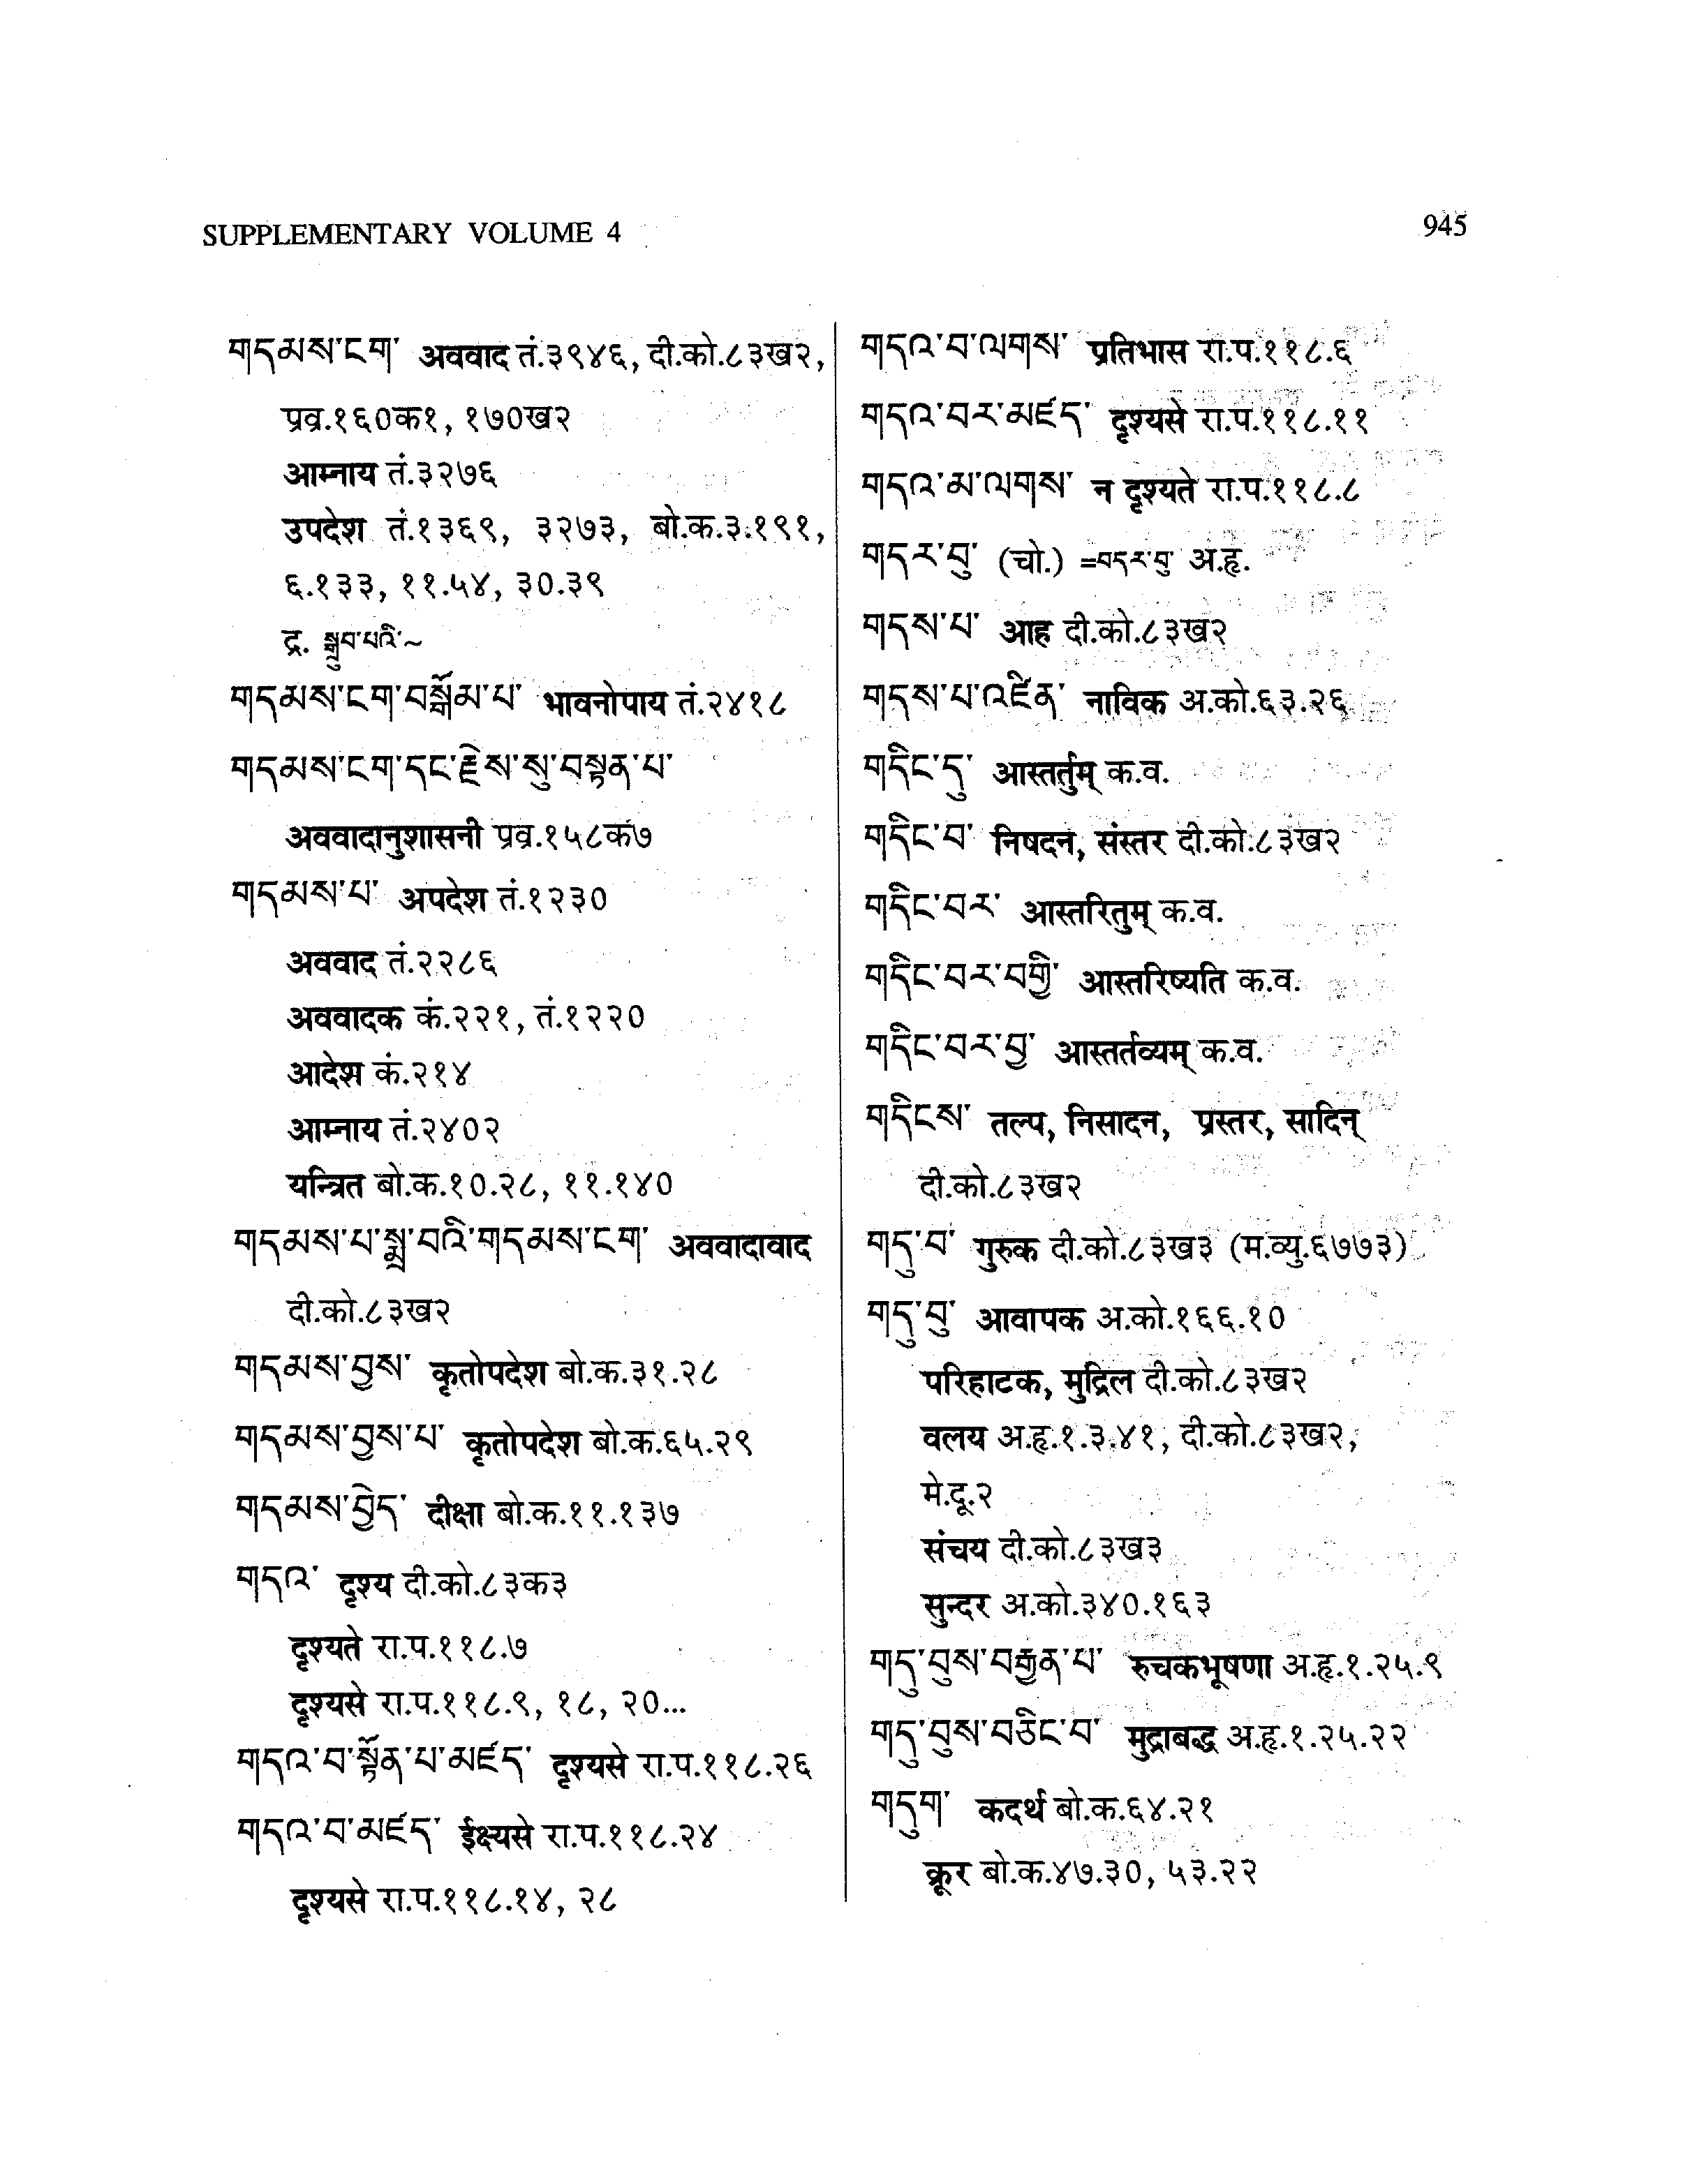 SUPPLEMENTARY VOLUME 4
945
གདམས་ངག་ अववाद तं.३९४६, दी.को.८३ख२,
प्रव्र.१६०क१, १७०ख२
आम्नाय तं.३२७६
उपदेश तं.१३६९, ३२७३, बो.क.३.१९१,
६.१३३, ११.५४, ३०.३९
द्र. སྒྲུབ་པའི་~
གདམས་ངག་བསྒོམ་པ་ भावनोपाय तं.२४१८
གདམས་ངག་དང་རྗེས་སུ་བསྟན་པ་
अववादानुशासनी प्रव्र.१५८क७
གདམས་པ་ अपदेश तं.१२३०
अववाद तं.२२८६
अववादक कं.२२१, तं.१२२०
आदेश कं.२१४
आम्नाय तं.२४०२
यन्त्रित बो.क.१०.२८, ११.१४०
གདམས་པ་སྨྲ་བའི་གདམས་ངག་ अववादावाद
दी.को.८३ख२
གདམས་བྱས་ कृतोपदेश बो.क.३१.२८
གདམས་བྱས་པ་ कृतोपदेश बो.क.६५.२९
གདམས་བྱེད་ दीक्षा बो.क.११.१३७
གདའ་ दृश्य दी.को.८३क३
दृश्यते रा.प.११८.७
दृश्यसे रा.प.११८.९, १८, २०...
གདའ་བ་སྟོན་པ་མཛད་ दृश्यसे रा.प.११८.२६
གདའ་བ་མཛད་ ईक्ष्यसे रा.प.११८.२४
दृश्यसे रा.प.११८.१४, २८
གདའ་བ་ལགས་ प्रतिभास रा.प.११८.६
གདའ་བར་མཛད་ दृश्यसे रा.प.११८.११
གདའ་མ་ལགས་ न दृश्यते रा.प.११८.८
གདར་བུ་ (चो.) =བདར་བུ་ अ.हृ.
གདས་པ་ आह दी.को.८३ख२
གདས་པ་འཛིན་ नाविक अ.को.६३.२६
གདིང་དུ་ आस्तर्तुम् क.व.
གདིང་བ་ निषदन, संस्तर दी.को.८३ख२
གདིང་བར་ आस्तरितुम् क.व.
གདིང་བར་བགྱི་ आस्तरिष्यति क.व.
གདིང་བར་བྱ་ आस्तर्तव्यम् क.व.
གདིངས་ तल्प, निसादन, प्रस्तर, सादिन्
दी.को.८३ख२
གདུ་བ་ गुरुक दी.को.८३ख३ (म.व्यु.६७७३)
གདུ་བུ་ आवापक अ.को.१६६.१०
परिहाटक, मुद्रिल दी.को.८३ख२
वलय अ.हृ.१.३.४१, दी.को.८३ख२,
मे.दू.२
संचय दी.को.८३ख३
सुन्दर अ.को.३४०.१६३
གདུ་བུས་བརྒྱན་པ་ रुचकभूषणा अ.हृ.१.२५.९
གདུ་བུས་བཅིང་བ་ मुद्राबद्ध अ.हृ.१.२५.२२
གདུག་ कदर्थ बो.क.६४.२१
क्रूर बो.क.४७.३०, ५३.२२